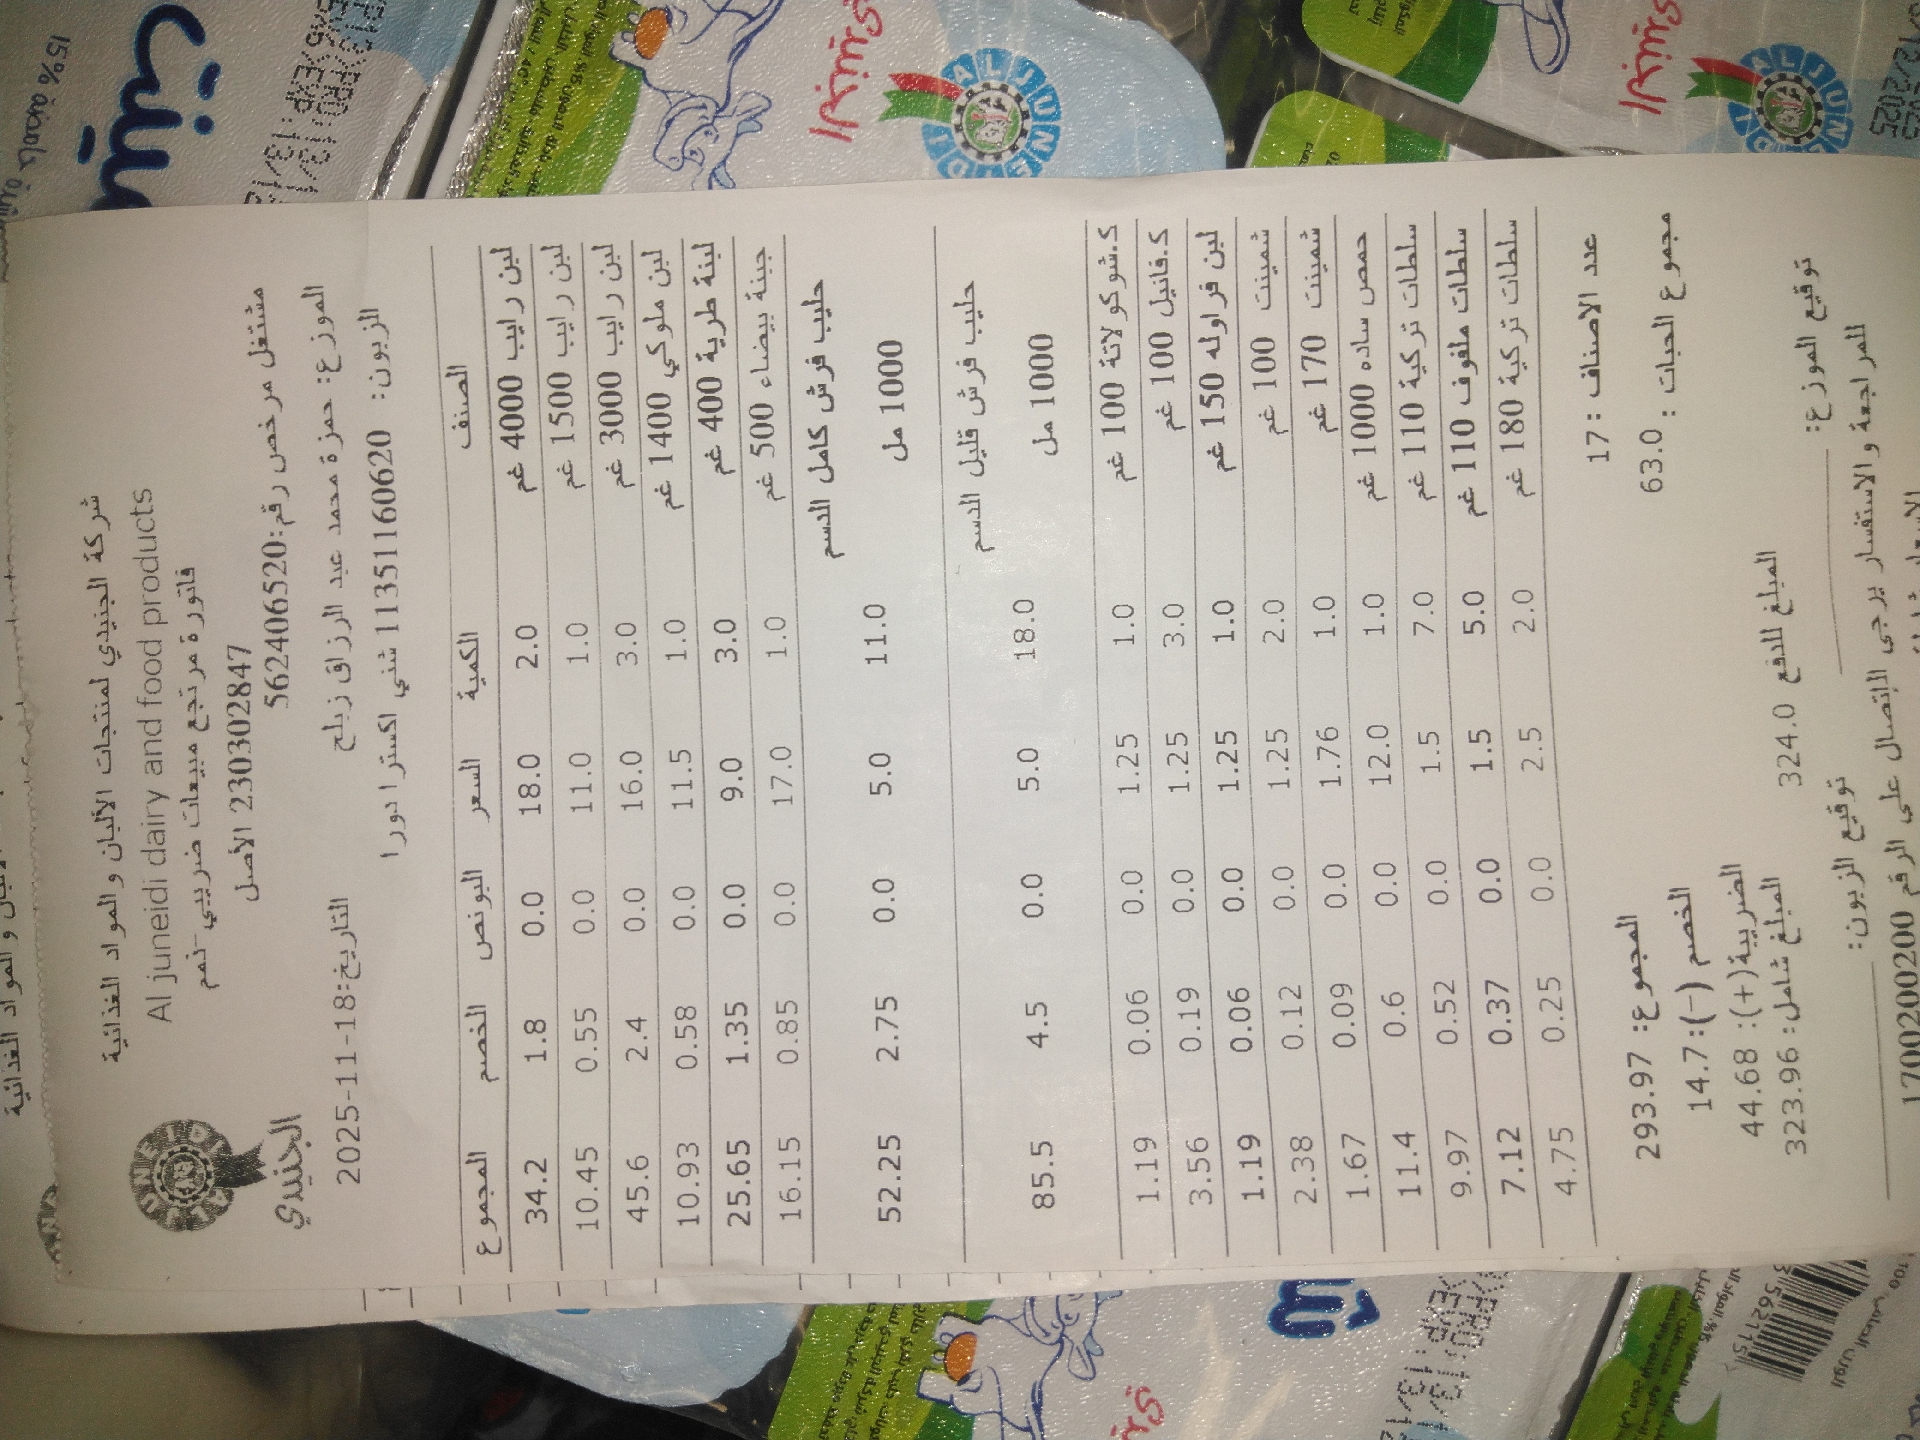 شركة الجنيدي لمنتجات الألبان والمواد الغذائية
Al juneidi dairy and food products
فاتورة مرتجع مبيعات ضريبي-نعم
230302847 الأصل
الجنيدي
مشتغل مرخص رقم:562406520
الموزع: حمزة محمد عبد الرزاق زبلح
التاريخ:2025-11-18
الزبون: 11351160620 شني اكسترا دورا
الصنف الكمية السعر البونص الخصم المجموع
لبن رايب 4000 غم 2.0 18.0 0.0 1.8 34.2
لبن رايب 1500 غم 1.0 11.0 0.0 0.55 10.45
لبن رايب 3000 غم 3.0 16.0 0.0 2.4 45.6
لبن ملوكي 1400 غم 1.0 11.5 0.0 0.58 10.93
لبنة طرية 400 غم 3.0 9.0 0.0 1.35 25.65
جبنة بيضاء 500 غم 1.0 17.0 0.0 0.85 16.15
حليب فرش كامل الدسم
1000 مل 11.0 5.0 0.0 2.75 52.25
حليب فرش قليل الدسم
1000 مل 18.0 5.0 0.0 4.5 85.5
ك.شوكولاتة 100 غم 1.0 1.25 0.0 0.06 1.19
ك.فانيل 100 غم 3.0 1.25 0.0 0.19 3.56
لبن فراوله 150 غم 1.0 1.25 0.0 0.06 1.19
شمينت 100 غم 2.0 1.25 0.0 0.12 2.38
شمينت 170 غم 1.0 1.76 0.0 0.09 1.67
حمص ساده 1000 غم 1.0 12.0 0.0 0.6 11.4
سلطات تركية 110 غم 7.0 1.5 0.0 0.52 9.97
سلطات ملفوف 110 غم 5.0 1.5 0.0 0.37 7.12
سلطات تركية 180 غم 2.0 2.5 0.0 0.25 4.75
عدد الاصناف : 17
المجموع: 293.97
مجموع الحبات : 63.0
الخصم (-):14.7
الضريبة(+): 44.68
المبلغ للدفع 324.0
المبلغ شامل: 323.96
توقيع الموزع:
توقيع الزبون:
للمراجعة والاستفسار يرجى الاتصال على الرقم 1700200200
الجنيدي
AL JUNEIDI